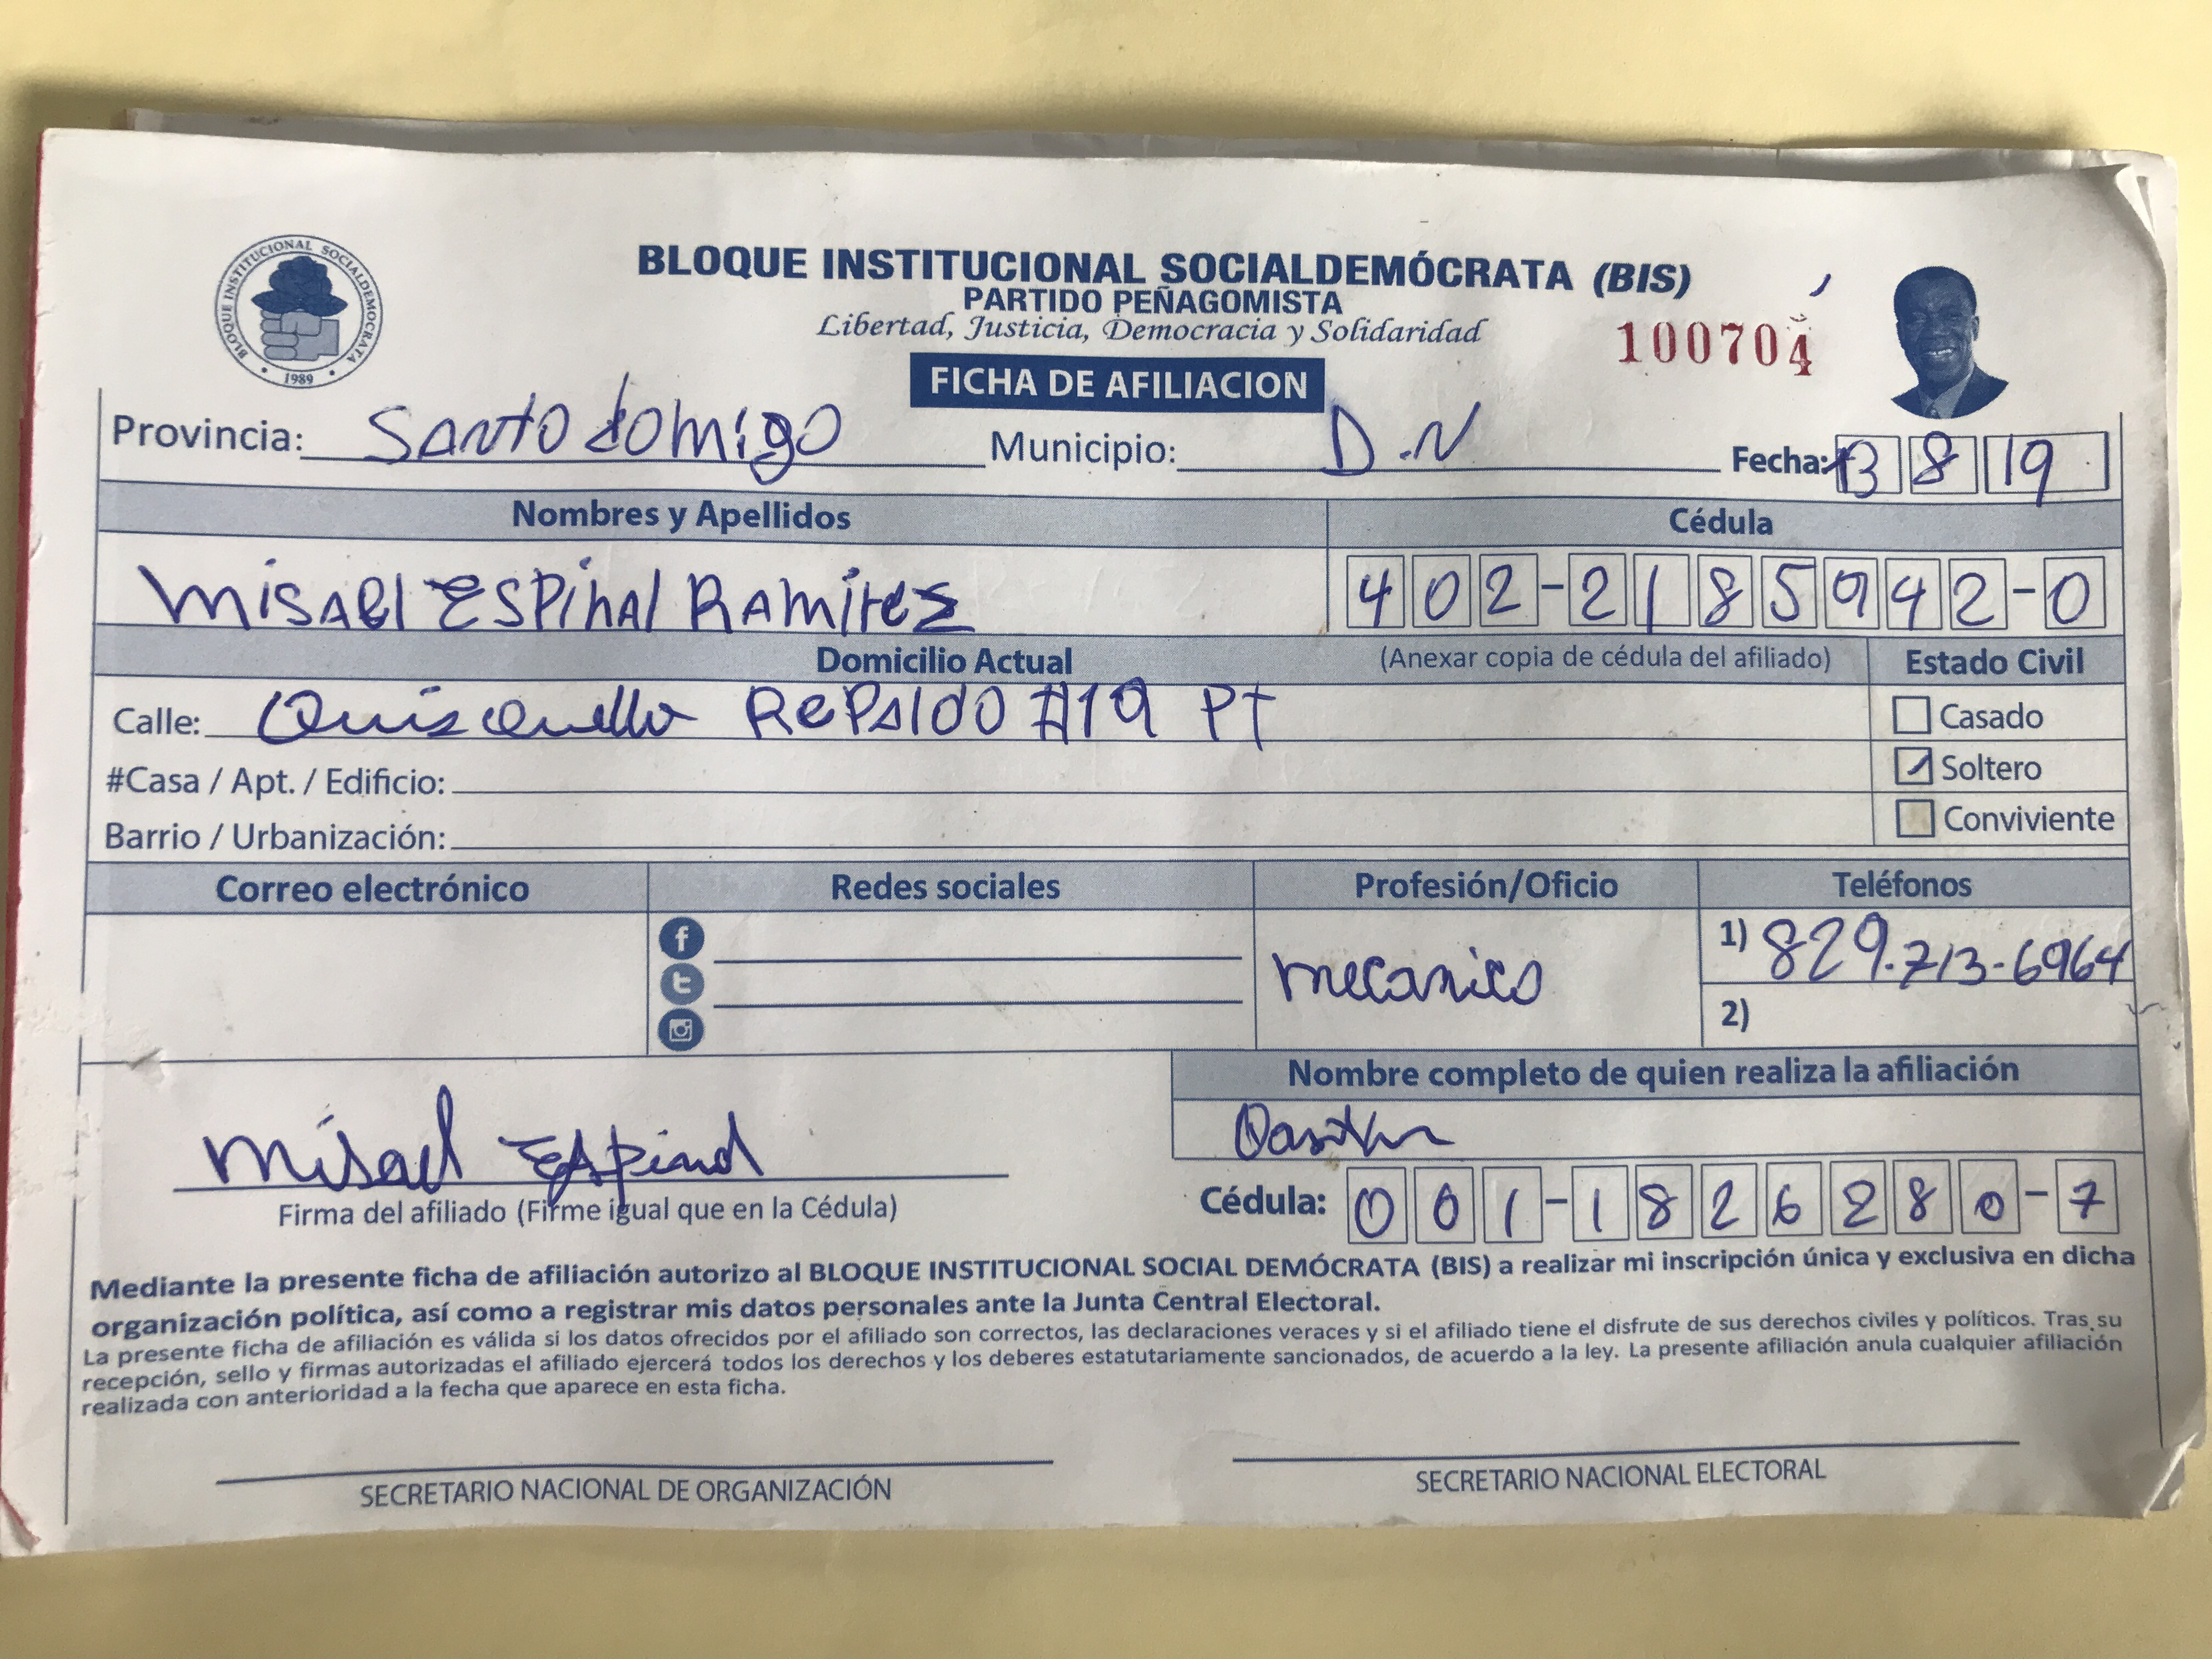 BLOQUE INSTITUCIONAL SOCIALDEMÓCRATA
1989
BLOQUE INSTITUCIONAL SOCIALDEMÓCRATA (BIS)
PARTIDO PEÑAGOMISTA
Libertad, Justicia, Democracia y Solidaridad
100704
FICHA DE AFILIACION
Provincia: Santo domigo Municipio: D.N Fecha: 13 8 19
Nombres y Apellidos Cédula
MISAEl ESPINAl RAMIREZ 402-2185942-0
Domicilio Actual (Anexar copia de cédula del afiliado) Estado Civil
Calle: RePAldO #19 PT Casado
#Casa / Apt. / Edificio: Soltero
Barrio / Urbanización: Conviviente
Correo electrónico Redes sociales Profesión/Oficio Teléfonos
mecanico 1) 829.713-6964
2)
Nombre completo de quien realiza la afiliación
Misael Espinal
Firma del afiliado (Firme igual que en la Cédula) Cédula: 001-1826280-7
Mediante la presente ficha de afiliación autorizo al BLOQUE INSTITUCIONAL SOCIAL DEMÓCRATA (BIS) a realizar mi inscripción única y exclusiva en dicha
organización política, así como a registrar mis datos personales ante la Junta Central Electoral.
La presente ficha de afiliación es válida si los datos ofrecidos por el afiliado son correctos, las declaraciones veraces y si el afiliado tiene el disfrute de sus derechos civiles y políticos. Tras su
recepción, sello y firmas autorizadas el afiliado ejercerá todos los derechos y los deberes estatutariamente sancionados, de acuerdo a la ley. La presente afiliación anula cualquier afiliación
realizada con anterioridad a la fecha que aparece en esta ficha.
SECRETARIO NACIONAL DE ORGANIZACIÓN SECRETARIO NACIONAL ELECTORAL